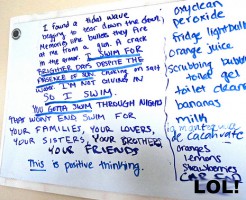 I found a tidal wave
begging to tear down the dawn
Memories like bullets they fire
at me from a gun. A crack
in the armor. I SWIM FOR
BRIGHTER DAYS DESPITE THE
ABSENCE OF SUN. Choking on salt
water. I'M NOT GIVING IN
SO I SWIM.
YOU GOTTA SWIM THROUGH NIGHTS
THAT WON'T END. SWIM FOR
YOUR FAMILIES, YOUR LOVERS,
YOUR SISTERS, YOUR BROTHERS,
YOUR FRIENDS
This is positive thinking.
oxyclean
peroxide
fridge lightbulb
orange juice
scrubbing bubbles
toilet gel
toilet cleaner
bananas
milk
de cacahuate
oranges
lemons
strawberries
LOL!